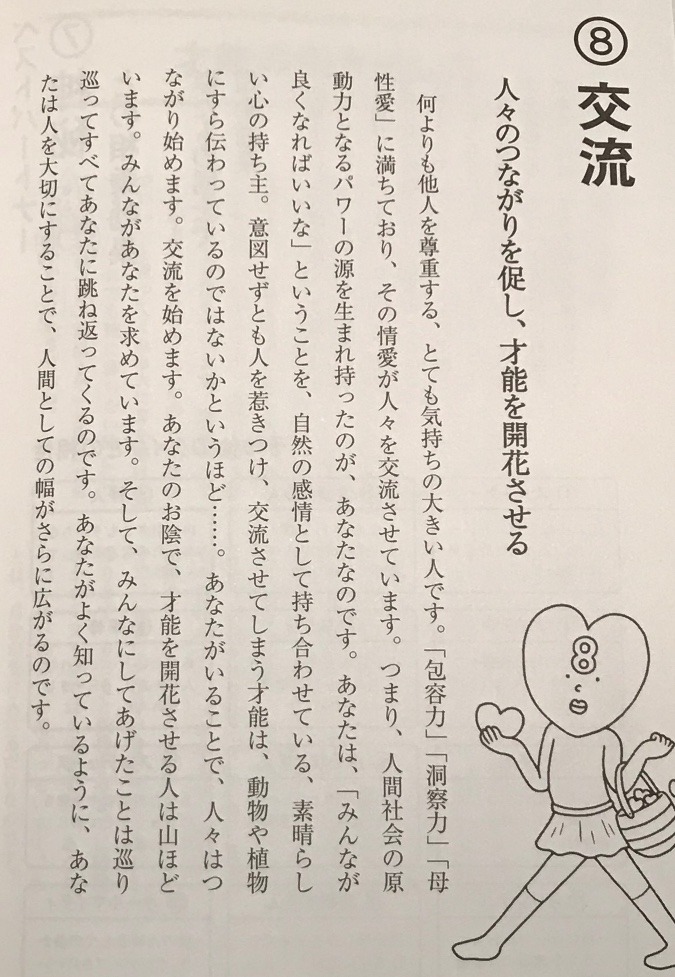 ⑧ 交流
人々のつながりを促し、才能を開花させる
何よりも他人を尊重する、とても気持ちの大きい人です。「包容力」「洞察力」「母
性愛」に満ちており、その情愛が人々を交流させています。つまり、人間社会の原
動力となるパワーの源を生まれ持ったのが、あなたなのです。あなたは、「みんなが
良くなればいいな」ということを、自然の感情として持ち合わせている、素晴らし
い心の持ち主。意図せずとも人を惹きつけ、交流させてしまう才能は、動物や植物
にすら伝わっているのではないかというほど……。あなたがいることで、人々はつ
ながり始めます。交流を始めます。あなたのお陰で、才能を開花させる人は山ほど
います。みんながあなたを求めています。そして、みんなにしてあげたことは巡り
巡ってすべてあなたに跳ね返ってくるのです。あなたがよく知っているように、あな
たは人を大切にすることで、人間としての幅がさらに広がるのです。
8